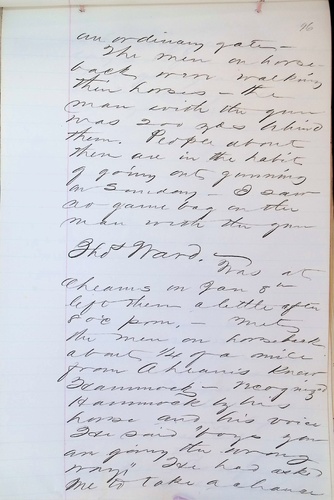 96
an ordinary gate —
The men on horse-
back were walking
their horses — the
man with the gun
was 200 yds behind
them. People about
there are in the habit
of going out gunning
on Sunday — I saw
no game bag on the
man with the gun
Thos Ward. —
Was at
on Jan 8th
left there a little after
8 o'c p.m. — Met
the men on horseback
about 1/4 of a mile
from Knew
Hammock — recognized
Hammock by his
horse and his voice
He said "boys you
are going the wrong
way" He had asked
me to take a chance